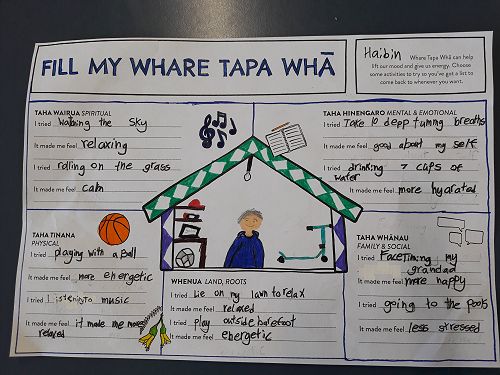 FILL MY WHARE TAPA WHĀ
Haibin
Whare Tapa Whā can help
lift our mood and give us energy. Choose
some activities to try so you've got a list to
come back to whenever you want.
TAHA WAIRUA SPIRITUAL
I tried Watching the Sky
It made me feel relaxing
I tried rolling on the grass
It made me feel calm
TAHA HINENGARO MENTAL & EMOTIONAL
I tried Take 10 depp tummy breaths
It made me feel good about my self
I tried drinking 7 cups of
water
It made me feel more hydrated
TAHA TINANA
PHYSICAL
I tried playing with a Ball
It made me feel more energetic
I tried Listening to music
It made me feel it made me more
relaxed
WHENUA LAND, ROOTS
I tried Lie on my lawn to relax
It made me feel relaxed
I tried play outside barefoot
It made me feel energetic
TAHA WHĀNAU
FAMILY & SOCIAL
I tried Facetiming my
grandad
It made me feel more happy
I tried going to the pools
It made me feel less stressed